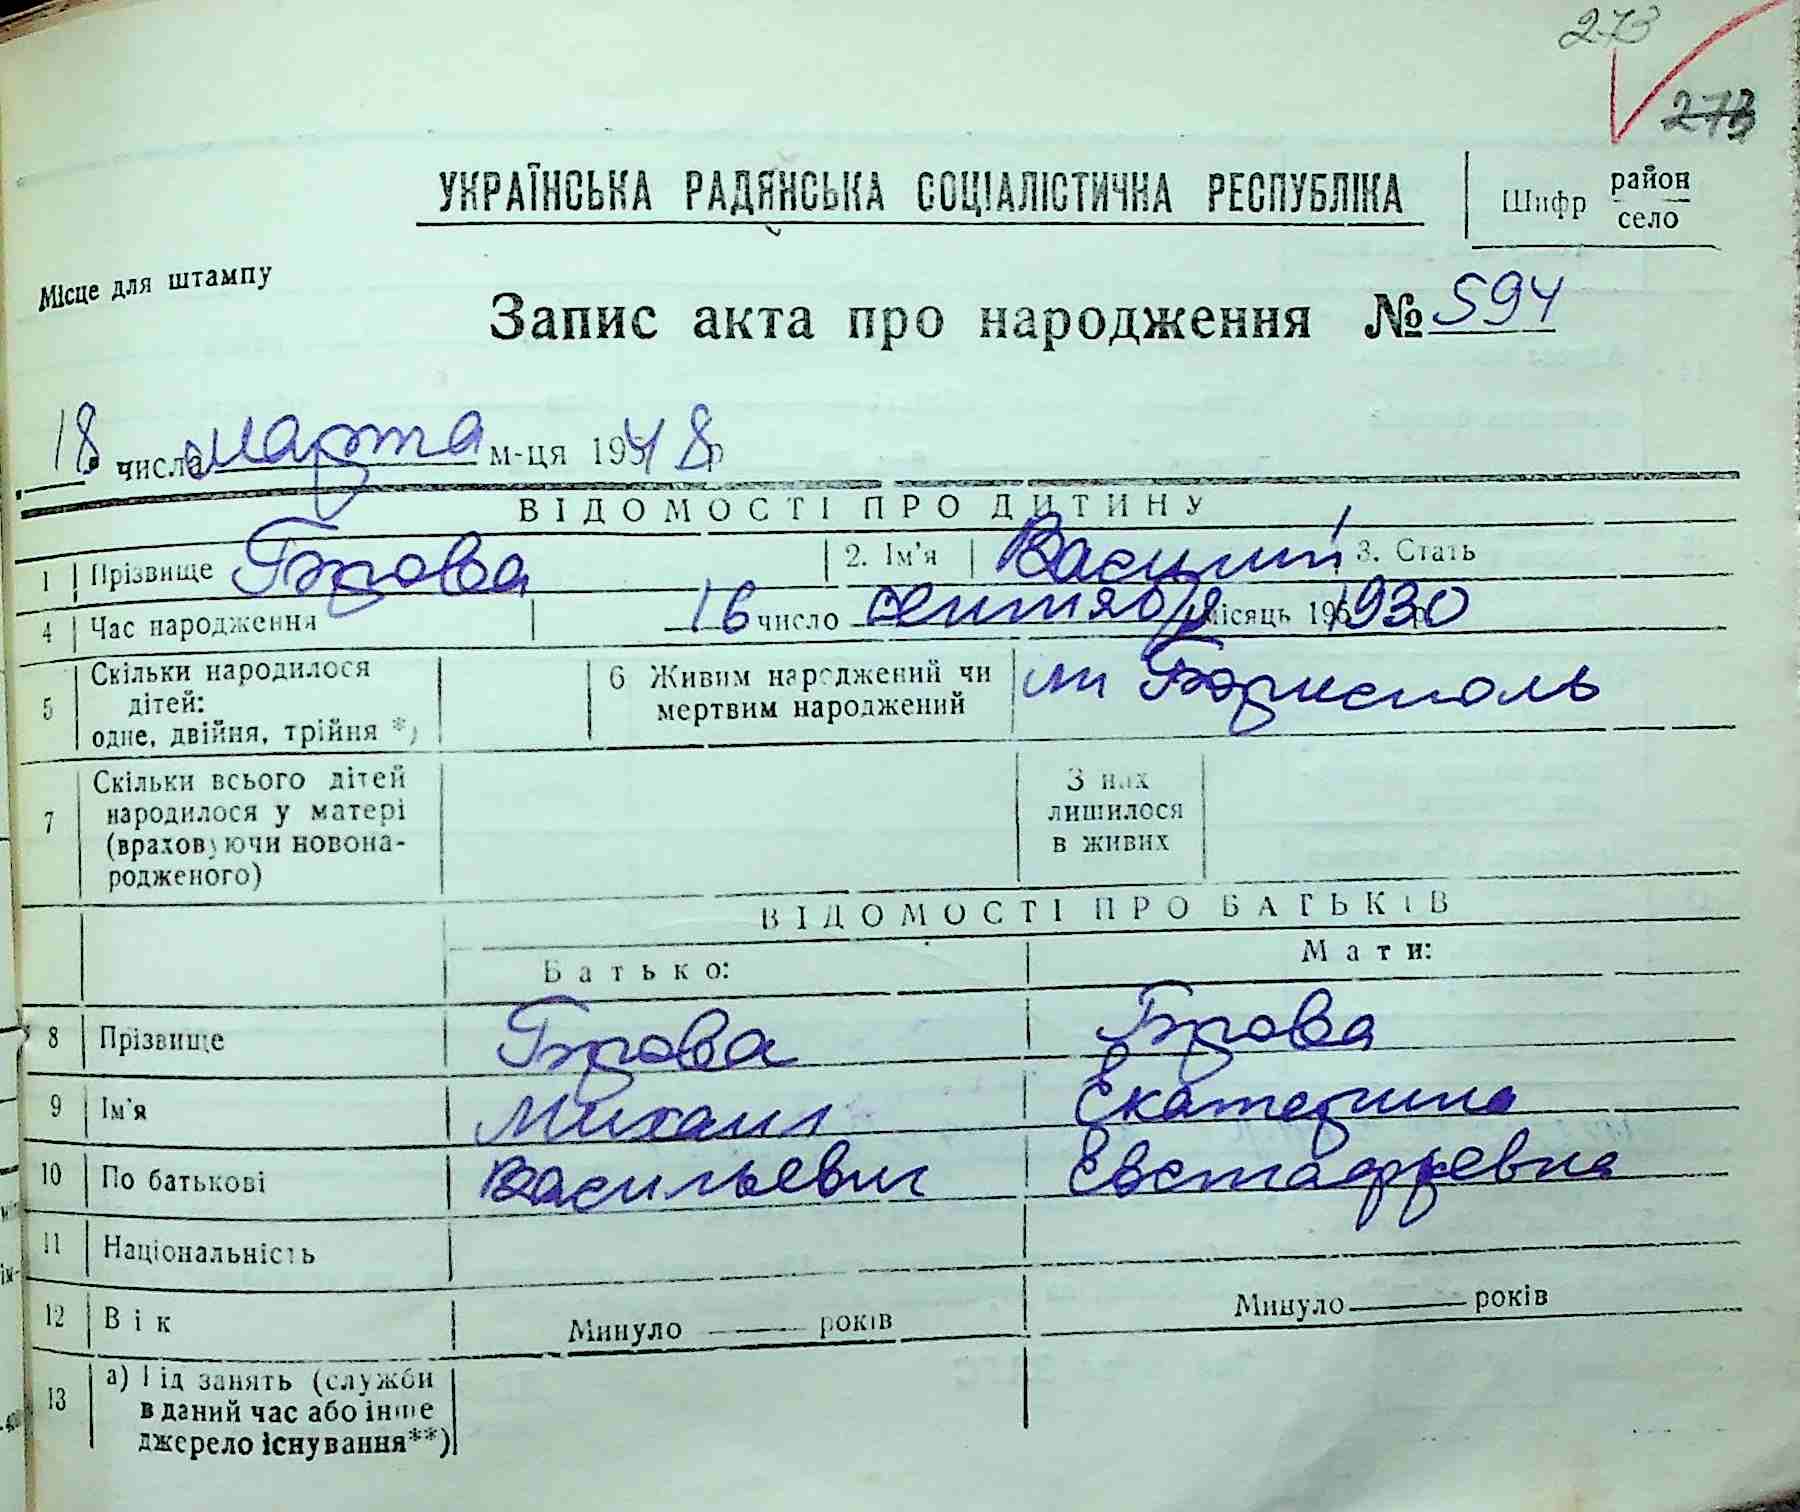 273
273
УКРАЇНСЬКА РАДЯНСЬКА СОЦІАЛІСТИЧНА РЕСПУБЛІКА
Шифр район село
Місце для штампу
Запис акта про народження № 594
18 числа марта м-ця 1948 р
ВІДОМОСТІ ПРО ДИТИНУ
1 Прізвище Брова 2. Ім'я Василий 3. Стать
4 Час народження 16 число сентября місяць 195 1930 р
5 Скільки народилося дітей: одне, двійня, трійня *) 6 Живим народжений чи мертвим народжений м Борисполь
7 Скільки всього дітей народилося у матері (враховуючи новонародженого) З них лишилося в живих
ВІДОМОСТІ ПРО БАТЬКІВ
Батько: Мати:
8 Прізвище Брова Брова
9 Ім'я Михаил Екатерина
10 По батькові Васильевич Евстафьевна
11 Національність
12 Вік Минуло ——— років Минуло ——— років
13 а) Рід занять (служби
в даний час або інше
джерело існування**)